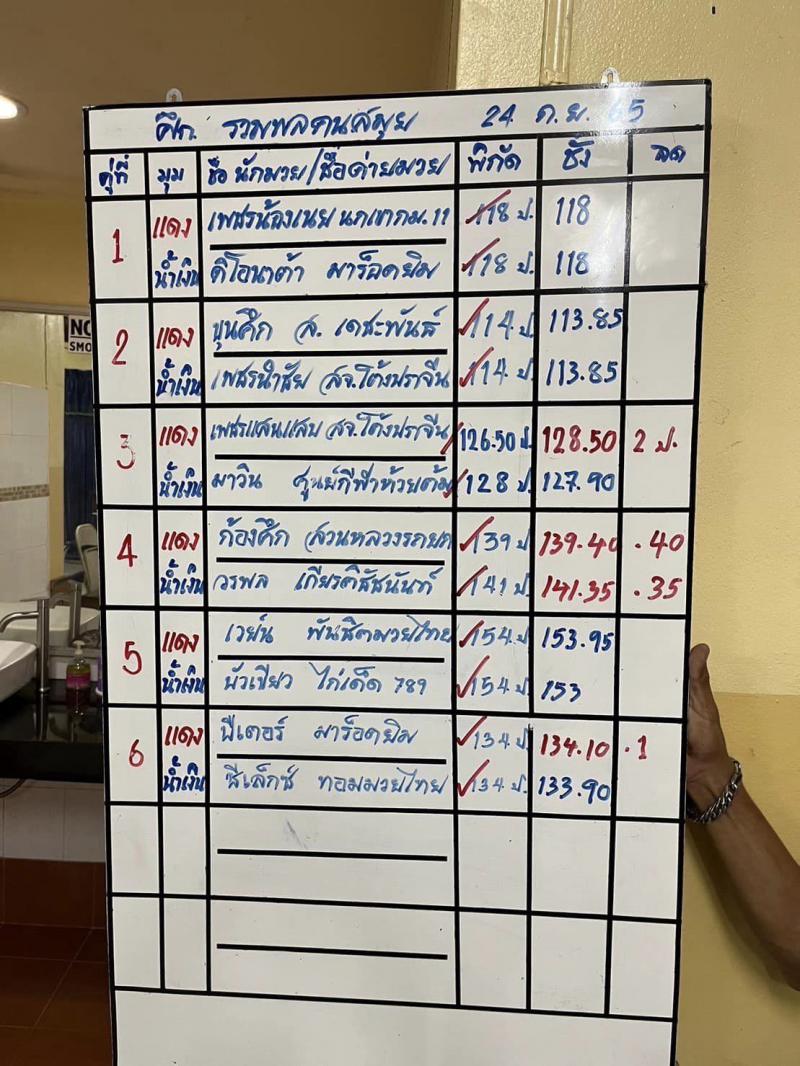 ศึก รวมพลคนสมุย 24 ก.ย. 65
คู่ที่ มุม ชื่อนักมวย/ชื่อค่ายมวย พิกัด ชั่ง ลด
1 แดง เพชรน้องเนย นกเขากม.11 118 ป. 118
น้ำเงิน ดิโอนาต้า มาร็อคยิม 118 ป. 118
2 แดง ขุนศึก ส. เดชะพันธ์ 114 ป. 113.85
น้ำเงิน เพชรนำชัย สจ.โต้งปราจีน 114 ป. 113.85
3 แดง เพชรแสนแสบ สจ.โต้งปราจีน 126.50 ป. 128.50 2 ป.
น้ำเงิน มาวิน ศูนย์กีฬาห้วยต้ม 128 ป. 127.90
4 แดง ก้องศึก สวนหลวงรถยก 139 ป. 139.40 .40
น้ำเงิน วรพล เกียรติชัชนันท์ 141 ป. 141.35 .35
5 แดง เวย์น พันธิตมวยไทย 154 ป. 153.95
น้ำเงิน บัวเขียว ไก่เด็ด 789 154 ป. 153
6 แดง ปีเตอร์ มาร็อคยิม 134 ป. 134.10 .1
น้ำเงิน ซีเล็กซ์ ทอมมวยไทย 134 ป. 133.90
NO
SMO